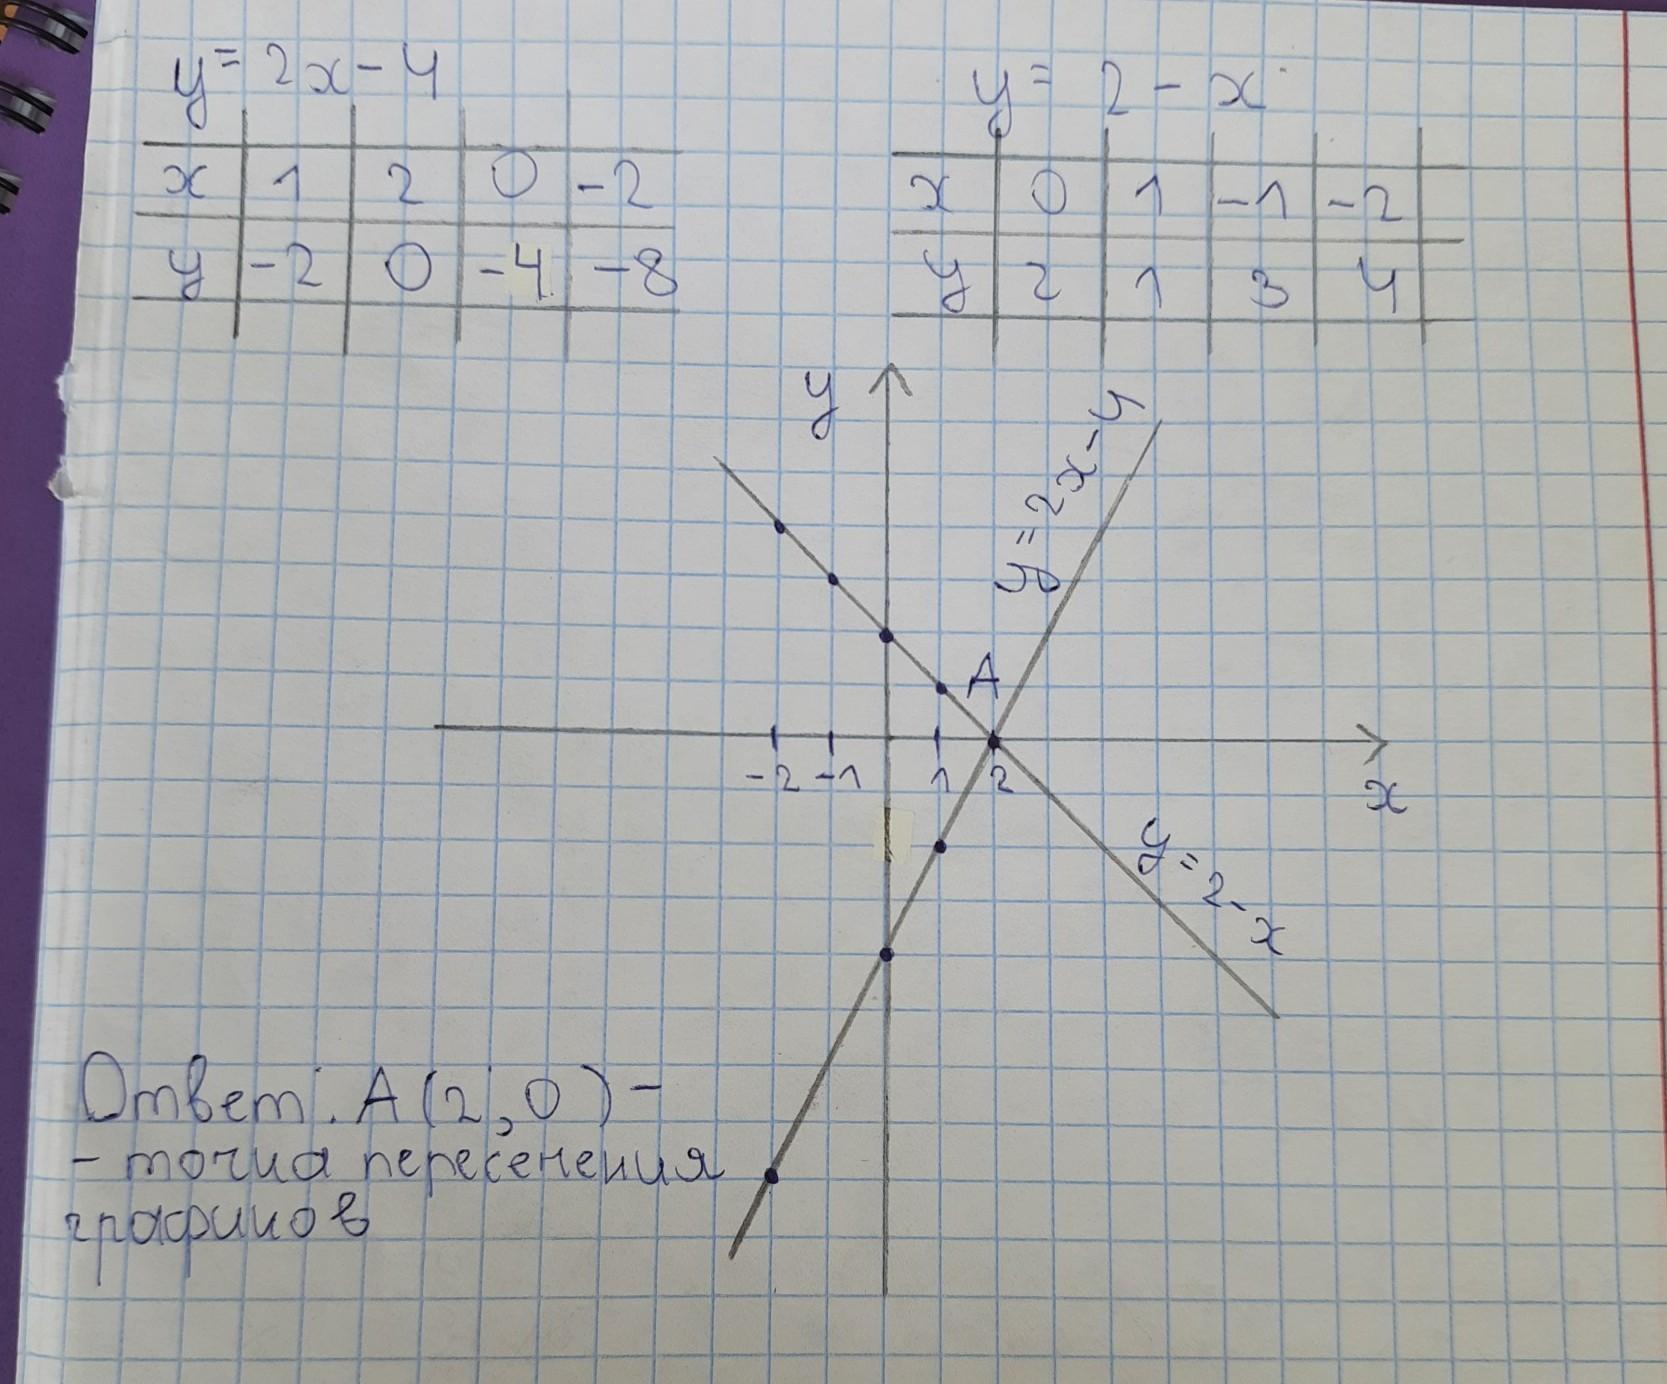 y = 2x - 4
x 1 2 0 -2
y -2 0 -4 -8
y = 2 - x
x 0 1 -1 -2
y 2 1 3 4
y
y = 2x - 4
A
-2 -1 1 2
x
y = 2 - x
Ответ: A(2; 0) -
- точка пересечения
графиков